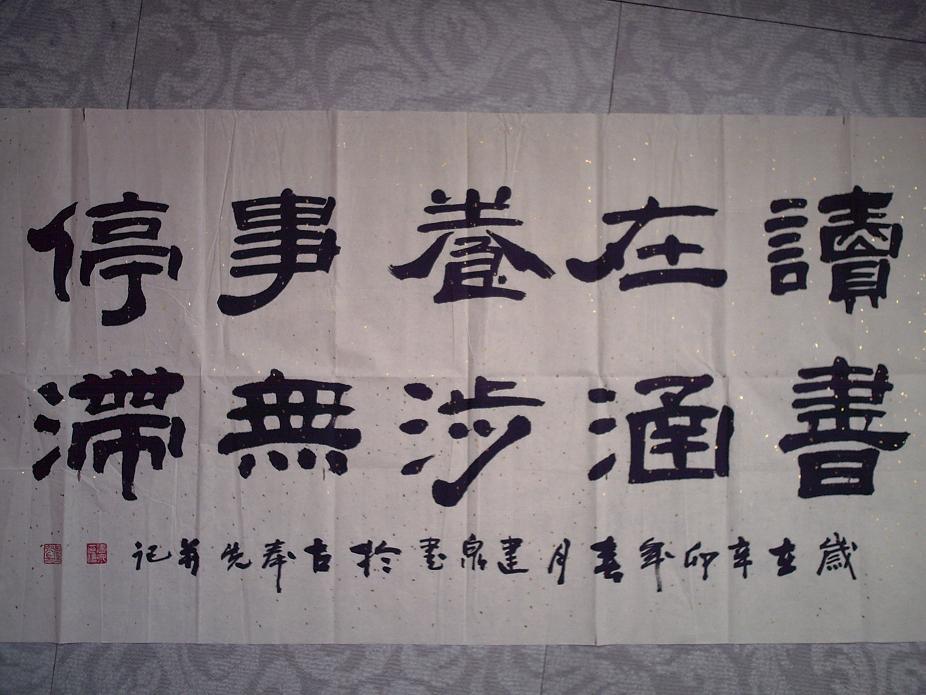 讀書
在涵
養涉
事無
停滯
歲在辛卯年春月建泉書於古奉先記